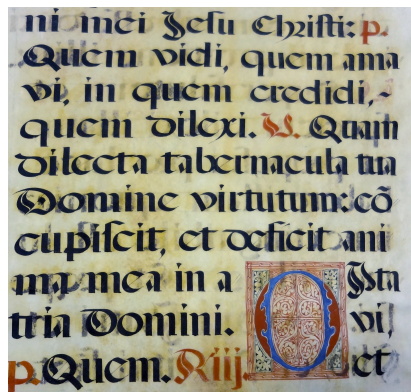 ni mei Jesu Christi: p.
Quem vidi, quem ama
vi, in quem credidi,-
quem dilexi. V. Quam
dilecta tabernacula tua
Domine virtutum: cõ
cupiscit, et deficit ani
ma mea in a
tria Domini. vi,
p. Quem. Riij. O et